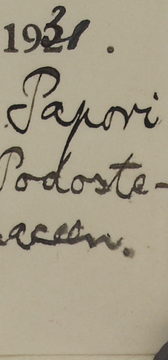 1921.
Papori
Podoste-
aceen.